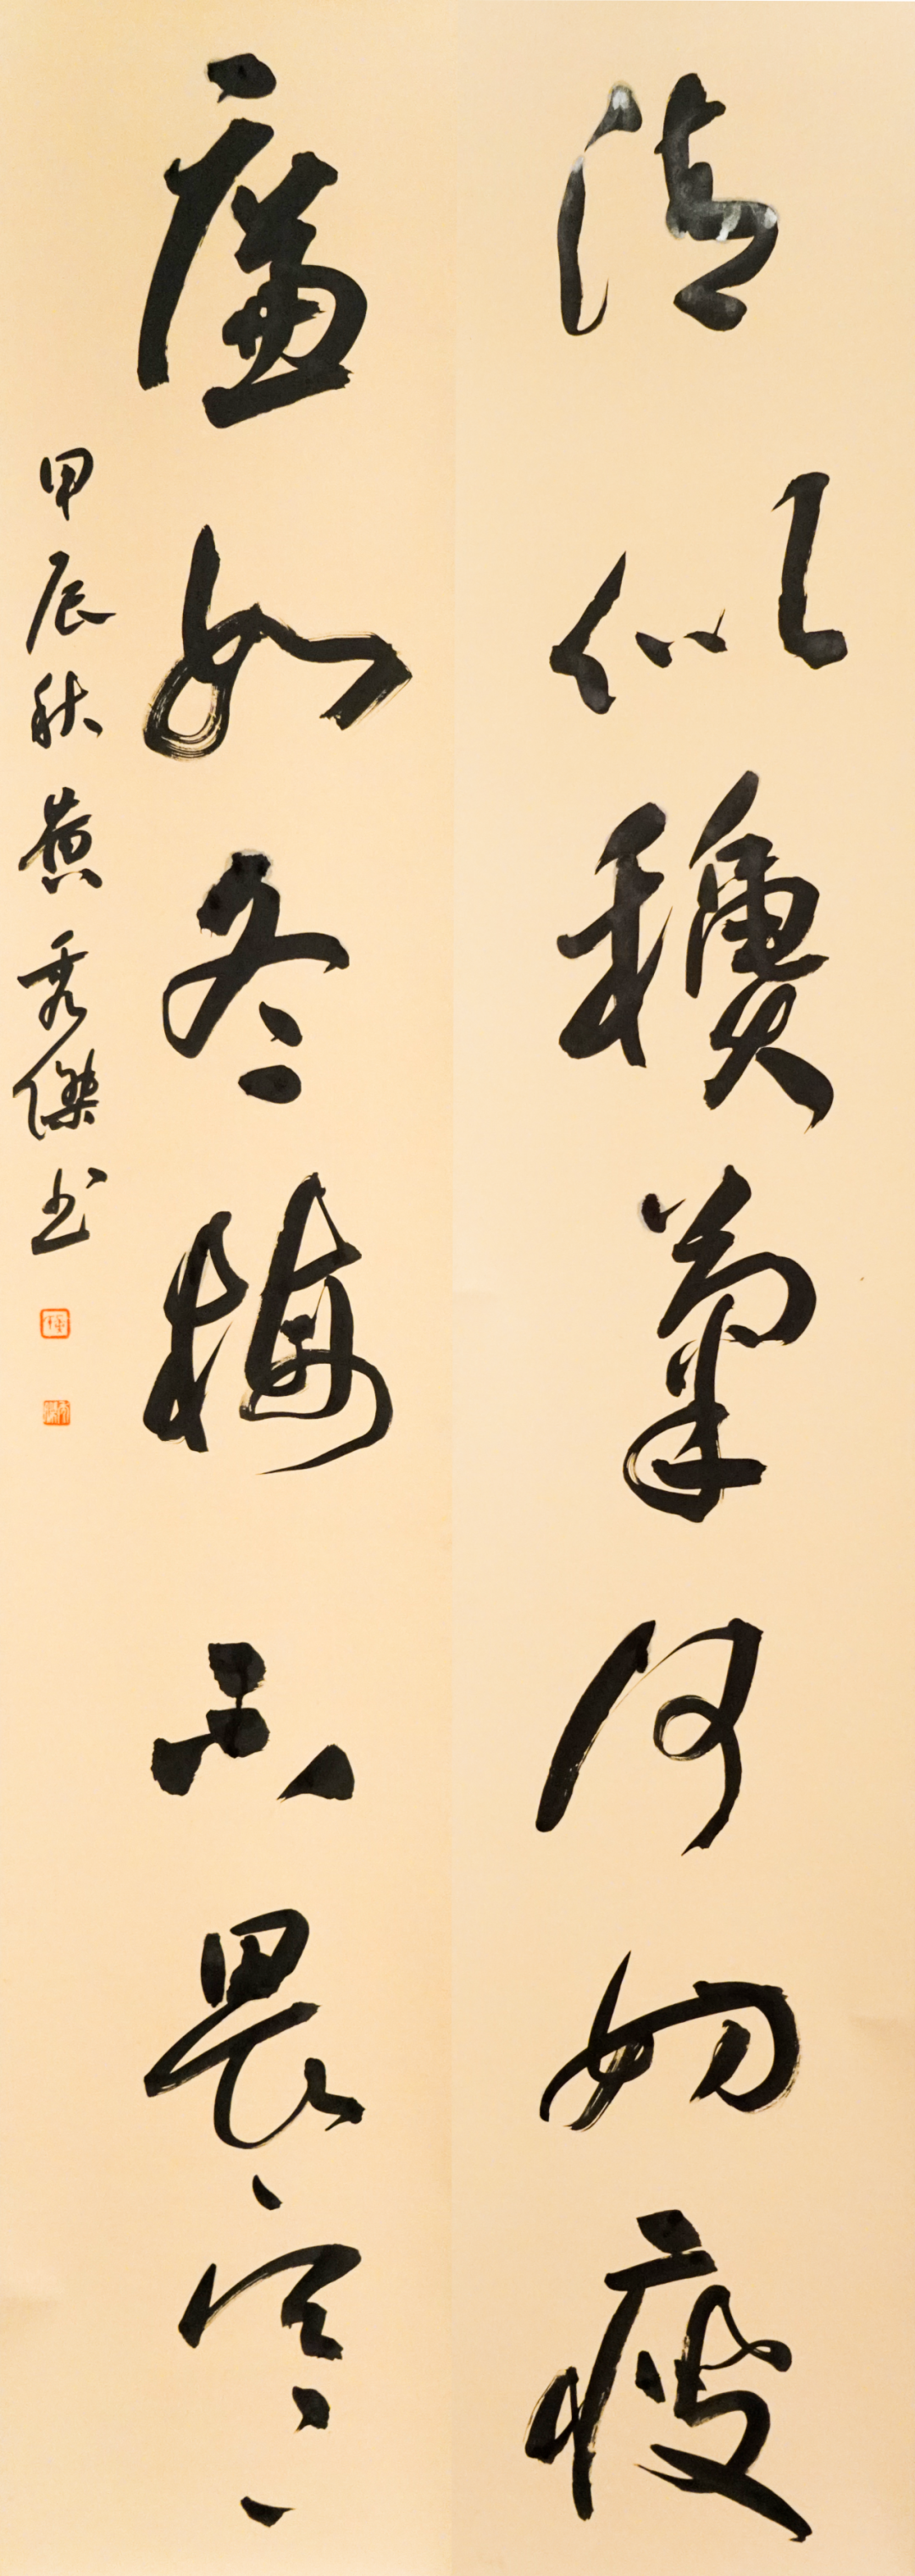 清似穠菊何妨瘦
廉如冬梅不畏寒
甲辰秋黄秀傑书